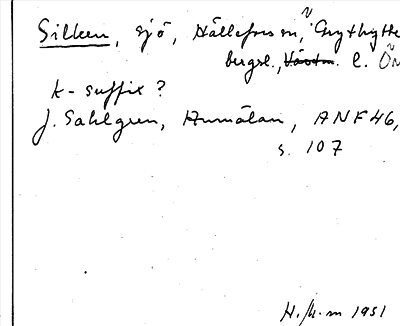 Silken, sjö, Hällefors sn, Grythytte
bergsl., Västm. l. Ö
k-suffix?
J. Sahlgren, Annälan, ANF 46,
s. 107
1951